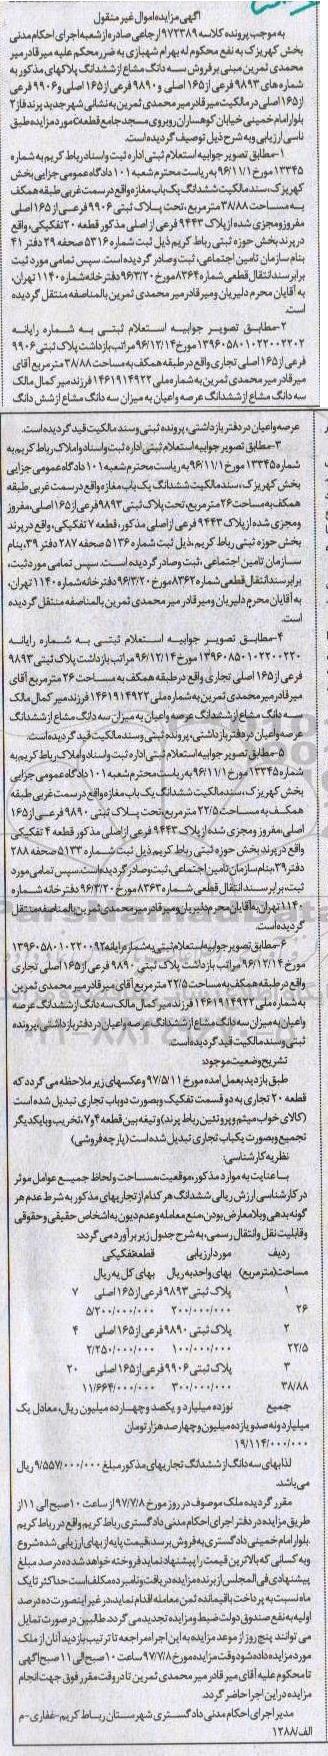 آگهی مزایده اموال غیر منقول
به موجب پرونده کلاسه ۹۷۲۳۸۹ ارجاعی صادره از شعبه اجرای احکام مدنی
بخش کهریزک به نفع محکوم له بهرام شهبازی به ضرر محکم علیه میر قادر میر
محمدی ثمرین مبنی بر فروش سه دانگ مشاع از ششدانگ پلاکهای مذکور به
شماره های ۹۸۹۳ فرعی از ۱۶۵ اصلی و ۹۸۹۰ فرعی از ۱۶۵ اصلی و ۹۹۰۶ فرعی
از ۱۶۵ اصلی در مالکیت میر قادر میر محمدی ثمرین به نشانی شهر جدید پرند فاز ۲
بلوار امام خمینی خیابان کوهساران روبروی مسجد جامع قطعه مورد مزایده طبق
نامی ارزیابی و به شرح ذیل توصیف گردیده است.
۱-مطابق تصویر جوابیه استعلام ثبتی اداره ثبت و اسناد رباط کریم به شماره
۱۳۳۴۵ مورخ ۹۶/۱۱/۱ به ریاست محترم شعبه ۱۰۱ دادگاه عمومی جزایی بخش
کهریزک، سند مالکیت ششدانگ یک باب مغازه واقع در سمت غربی طبقه همکف
به مساحت ۳۸/۸۸ متر مربع، تحت پلاک ثبتی ۹۹۰۶ فرعی از ۱۶۵ اصلی
مفروز و مجزی شده از پلاک ۹۴۴۳ فرعی از اصلی مذکور قطعه ۲۰ تفکیکی، واقع
در پرند بخش حوزه ثبتی رباط کریم ذیل ثبت شماره ۵۳۱۶ صفحه ۲۹ دفتر ۴۱
بنام سازمان تامین اجتماعی، ثبت و صادر گردیده است. سپس تمامی مورد ثبت
برابر سند انتقال قطعی شماره ۸۳۶۴ مورخ ۹۶/۳/۲۰ دفتر خانه شماره ۱۱۴۰ تهران،
به آقایان محرم دلیریان و میر قادر میر محمدی ثمرین بالمناصفه منتقل گردیده
است.
۲-مطابق تصویر جوابیه استعلام ثبتی به شماره رایانه
۱۳۹۶۰۸۵۰۱۰۲۲۰۰۲۲۰۲ مورخ ۹۶/۱۲/۱۴ مراتب بازداشت پلاک ثبتی ۹۹۰۶
فرعی از ۱۶۵ اصلی تجاری واقع در طبقه همکف به مساحت ۳۸/۸۸ متر مربع آقای
میر قادر میر محمدی ثمرین به شماره ملی ۱۴۶۱۹۱۴۹۲۲ فرزند میر کمال مالک
سه دانگ مشاع از ششدانگ عرصه و اعیان به میزان سه دانگ مشاع از شش دانگ
عرصه و اعیان در دفتر بازداشتی، پرونده ثبتی و سند مالکیت قید گردیده است.
۳-مطابق تصویر جوابیه استعلام ثبتی اداره ثبت و اسناد و املاک رباط کریم به
شماره ۱۳۳۴۵ مورخ ۹۶/۱۱/۱ به ریاست محترم شعبه ۱۰۱ دادگاه عمومی جزایی
بخش کهریزک، سند مالکیت ششدانگ یک باب مغازه واقع در سمت غربی طبقه
همکف به مساحت ۲۶ متر مربع، تحت پلاک ثبتی ۹۸۹۳ فرعی از ۱۶۵ اصلی، مفروز
و مجزی شده از پلاک ۹۴۴۳ فرعی از اصلی مذکور، قطعه ۷ تفکیکی، واقع در پرند
بخش حوزه ثبتی رباط کریم، ذیل ثبت شماره ۵۱۳۶ صفحه ۲۸۷ دفتر ۳۹، بنام
سازمان تامین اجتماعی، ثبت و صادر گردیده است. سپس تمامی مورد ثبت،
برابر سند انتقال قطعی شماره ۸۳۶۲ مورخ ۹۶/۳/۲۰ دفتر خانه شماره ۱۱۴۰ تهران،
به آقایان محرم دلیریان و میر قادر میر محمدی ثمرین بالمناصفه منتقل گردیده
است.
۴-مطابق تصویر جوابیه استعلام ثبتی به شماره رایانه
۱۳۹۶۰۸۵۰۱۰۲۲۰۰۲۲۰ مورخ ۹۶/۱۲/۱۴ مراتب بازداشت پلاک ثبتی ۹۸۹۳
فرعی از ۱۶۵ اصلی تجاری واقع در طبقه همکف به مساحت ۲۶ متر مربع آقای
میر قادر میر محمدی ثمرین به شماره ملی ۱۴۶۱۹۱۴۹۲۲ فرزند میر کمال مالک
سه دانگ مشاع از ششدانگ عرصه واعیان به میزان سه دانگ مشاع از ششدانگ
عرصه و اعیان در دفتر بازداشتی، پرونده ثبتی و سند مالکیت قید گردیده است.
۵-مطابق تصویر جوابیه استعلام ثبتی اداره ثبت و اسناد و املاک رباط کریم به
شماره ۱۳۳۴۵ مورخ ۹۶/۱۱/۱ به ریاست محترم شعبه ۱۰۱ دادگاه عمومی جزایی
بخش کهریزک، سند مالکیت ششدانگ یک باب مغازه واقع در سمت غربی طبقه
همکف به مساحت ۲۲/۵ متر مربع، تحت پلاک ثبتی ۹۸۹۰ فرعی از ۱۶۵
اصلی، مفروز و مجزی شده از پلاک ۹۴۴۳ فرعی از اصلی مذکور قطعه ۴ تفکیکی
واقع در پرند بخش حوزه ثبتی رباط کریم ذیل ثبت شماره ۵۱۳۳ صفحه ۲۸۸
دفتر ۳۹، بنام سازمان تامین اجتماعی، ثبت و صادر گردیده است. سپس تمامی مورد
ثبت، برابر سند انتقال قطعی شماره ۸۳۶۳ مورخ ۹۶/۳/۲۰ دفتر خانه شماره
۱۱۴۰ تهران، به آقایان محرم دلیریان و میر قادر میر محمدی ثمرین بالمناصفه منتقل
گردیده است.
۶-مطابق تصویر جوابیه استعلام ثبتی به شماره رایانه ۱۳۹۶۰۸۵۰۱۰۲۲۰۰۹۲
مورخ ۹۶/۱۲/۱۴ مراتب بازداشت پلاک ثبتی ۹۸۹۰ فرعی از ۱۶۵ اصلی تجاری
واقع در طبقه همکف به مساحت ۲۲/۵ متر مربع آقای میر قادر میر محمدی ثمرین
به شماره ملی ۱۴۶۱۹۱۴۹۲۲ فرزند میر کمال مالک سه دانگ از ششدانگ عرصه
واعیان به میزان سه دانگ مشاع از ششدانگ عرصه و اعیان در دفتر بازداشتی، پرونده
ثبتی و سند مالکیت قید گردیده است.
تشریح وضعیت موجود:
طبق بازدید بعمل آمده مورخ ۹۷/۵/۱۱ و عکسهای زیر ملاحظه می گردد که
قطعه ۲۰ تجاری به دو قسمت تفکیک و بصورت دو باب تجاری تبدیل شده است
(کالای خواب میثم و پروتئین رباط پرند) و تیغه بین قطعه ۴ و ۷، تخریب و با یکدیگر
تجمیع و بصورت یکباب تجاری تبدیل شده است (پارچه فروشی)
نظریه کارشناسی:
با عنایت به موارد مذکور، موقعیت، مساحت و لحاظ جمیع عوامل موثر
در کارشناسی ارزش ریالی ششدانگ هر کدام از تجاریهای مذکور به شرط عدم هر
گونه بدهی و بلامعارض بودن، منع معامله و عدم دیون به اشخاص حقیقی و حقوقی
و قابلیت نقل و انتقال رسمی، به شرح جدول زیر برآورد می گردد:
ردیف مورد ارزیابی قطعه تفکیکی
مساحت (متر مربع) بهای واحد به ریال بهای کل به ریال
۱ پلاک ثبتی ۹۸۹۳ فرعی از ۱۶۵ اصلی ۷
۲۶ ۲۰۰/۰۰۰/۰۰۰ ۵/۲۰۰/۰۰۰/۰۰۰
۲ پلاک ثبتی ۹۸۹۰ فرعی از ۱۶۵ اصلی ۴
۲۲/۵ ۱۰۰/۰۰۰/۰۰۰ ۲/۲۵۰/۰۰۰/۰۰۰
۳ پلاک ثبتی ۹۹۰۶ فرعی از ۱۶۵ اصلی ۲۰
۳۸/۸۸ ۳۰۰/۰۰۰/۰۰۰ ۱۱/۶۶۴/۰۰۰/۰۰۰
جمیع نوزده میلیارد و یکصد و چهارده میلیون ریال، معادل یک
میلیارد و نه صد و یازده میلیون و چهارصد هزار تومان
۱۹/۱۱۴/۰۰۰/۰۰۰
لذا بهای سه دانگ از ششدانگ تجاریهای مذکور مبلغ ۹/۵۵۷/۰۰۰/۰۰۰ ریال
می باشد.
مقرر گردیده ملک موصوف در روز مورخ ۹۷/۷/۸ از ساعت ۱۰ صبح الی ۱۱ از
طریق مزایده در دفتر اجرای احکام مدنی دادگستری رباط کریم واقع در رباط کریم
بلوار امام خمینی دادگستری به فروش برسد، قیمت پایه از بهای ارزیابی شده شروع
و به کسانی که بالاترین قیمت را پیشنهاد نماید فروخته خواهد شد ده درصد مبلغ
پیشنهادی فی المجلس از برنده مزایده دریافت و نامبرده مکلف است حداکثر تا یک
ماه نسبت به پرداخت باقیمانده ثمن معامله اقدام نماید، در غیر اینصورت ده درصد
اولیه به نفع صندوق دولت ضبط و مزایده تجدید می گردد. طالبین در صورت تمایل
می توانند پنج روز از موعد مزایده به این اجرا مراجعه تا ترتیب بازدید آنان از ملک
مورد مزایده داده شود وقت مزایده مورخ ۹۷/۷/۸ ساعت ۱۰ صبح الی ۱۱ صبح آگهی
تا محکوم علیه آقای میر قادر میر محمدی ثمرین تا در وقت مقرر فوق جهت انجام
مزایده در این اجرا حاضر گردد.
مدیر اجرای احکام مدنی دادگستری شهرستان رباط کریم-غفاری-م
الف/۱۲۸۸